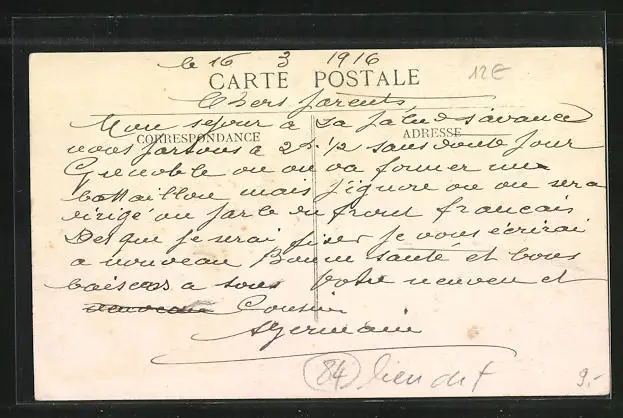 le 16 3 1916
12E
CARTE POSTALE
Chers parents
Mon sejour à La s'avance
CORRESPONDANCE ADRESSE
nous partons à 2h 1/2 sans doute pour
Grenoble ou on va former un
battaillon mais j'ignore ou on sera
dirigé on parle du front français
Des que je serai fixer je vous écrirai
a nouveau Bonne santé et bons
baisers a tous Votre neuveu et
Cousin
Germain
84 9.-